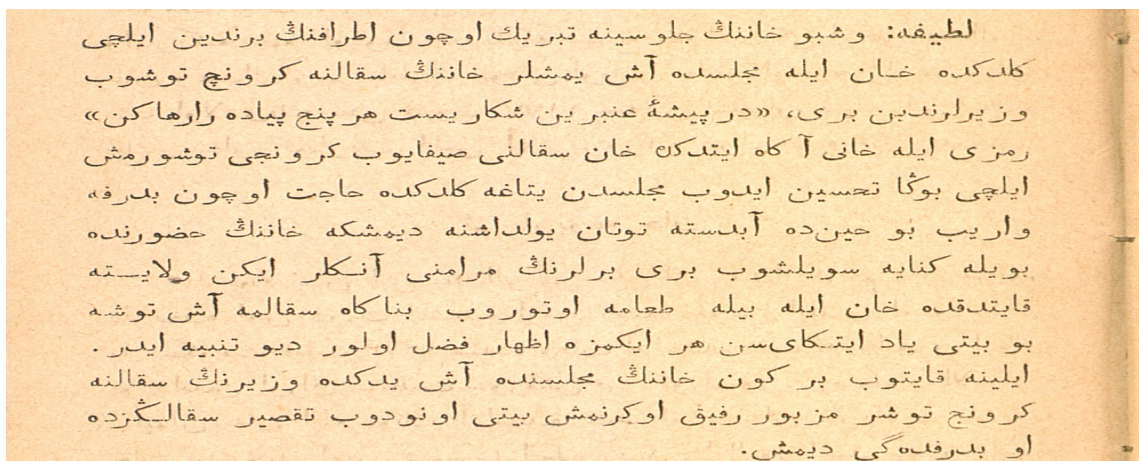 لطیفه: وشبو خاننڭ جلوسینه تبریك اوچون اطرافنڭ برندین ایلچی
كلدكده خان ایله مجلسده آش یمشلر خاننڭ سقالنه كرونچ توشوب
وزیرلرندین بری، «در پیشۀ عنبرین شكاریست هر پنج پیاده رارها كن»
رمزی ایله خانی آكاه ایتدكده خان سقالنی صیفایوب كرونجی توشورمش
ایلچی بوڭا تحسین ایدوب مجلسدن یتاغه كلدكده حاجت اوچون بدرفه
واریب بو حین‌ده آبدسته توتان یولداشنه دیمشكه خاننڭ حضورنده
بویله كنایه سویلشوب بری برلرنڭ مرامنی آنكلر ایكن ولایسته
قایتدقده خان ایله بیله طعامه اوتوروب بناكاه سقالمه آش توشه
بو بیتی یاد ایتكای‌سن هر ایكمزه اظهار فضل اولور دیو تنبیه ایدر.
ایلینه قایتوب بر كون خاننڭ مجلسنده آش یدكده وزیرنڭ سقالنه
كرونج توشر مزبور رفیق اوكرنمش بیتی اونودوب تقصیر سقالـڭزده
او بدرفده‌گی دیمش.